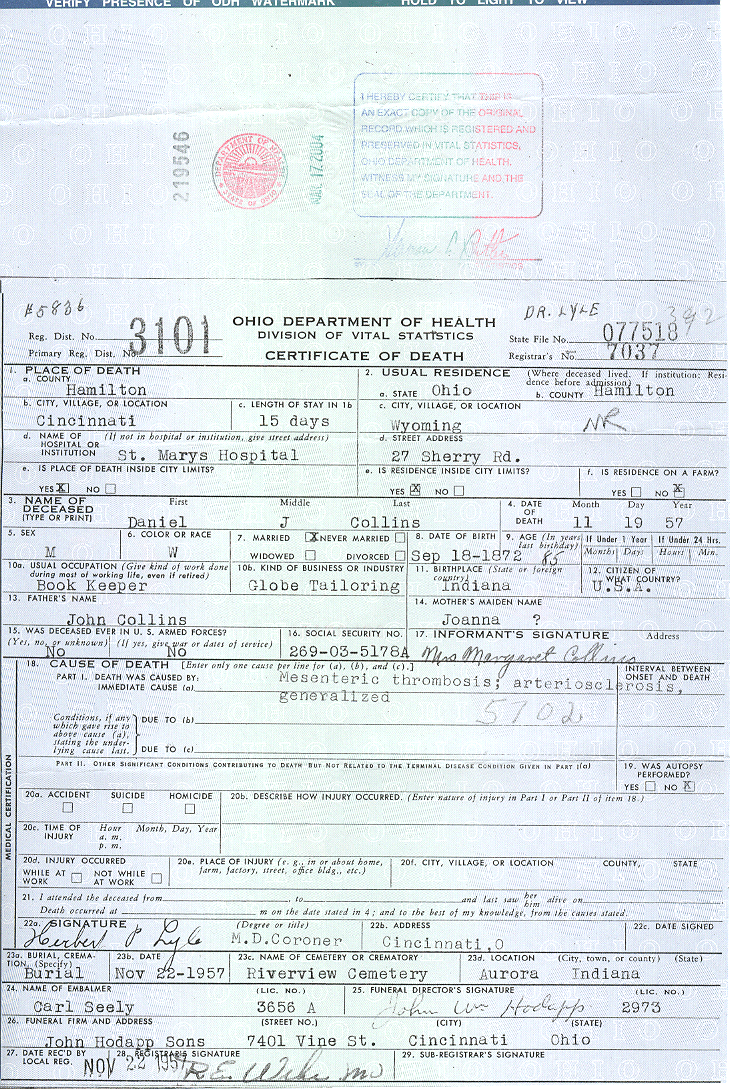 VERIFY PRESENCE OF ODH WATERMARK HOLD TO LIGHT TO VIEW
I HEREBY CERTIFY THAT THIS IS
AN EXACT COPY OF THE ORIGINAL
RECORD WHICH IS REGISTERED AND
PRESERVED IN VITAL STATISTICS,
OHIO DEPARTMENT OF HEALTH.
WITNESS MY SIGNATURE AND THE
SEAL OF THE DEPARTMENT.
219546
DEPARTMENT OF HEALTH
STATE OF OHIO
17 2004
#5836
DR. LYLE
392
Reg. Dist. No. 3101
Primary Reg. Dist. No.
OHIO DEPARTMENT OF HEALTH
DIVISION OF VITAL STATISTICS
CERTIFICATE OF DEATH
State File No. 077518
Registrar's No. 7037
1. PLACE OF DEATH
a. COUNTY
Hamilton
2. USUAL RESIDENCE (Where deceased lived. If institution: Residence before admission)
a. STATE Ohio b. COUNTY Hamilton
b. CITY, VILLAGE, OR LOCATION
Cincinnati
c. LENGTH OF STAY IN 1b
15 days
c. CITY, VILLAGE, OR LOCATION
Wyoming NR
d. NAME OF HOSPITAL OR INSTITUTION (If not in hospital or institution, give street address)
St. Marys Hospital
d. STREET ADDRESS
27 Sherry Rd.
e. IS PLACE OF DEATH INSIDE CITY LIMITS?
YES X NO
e. IS RESIDENCE INSIDE CITY LIMITS?
YES X NO
f. IS RESIDENCE ON A FARM?
YES NO X
3. NAME OF DECEASED (TYPE OR PRINT) First Middle Last
Daniel J Collins
4. DATE OF DEATH Month Day Year
11 19 57
5. SEX
M
6. COLOR OR RACE
W
7. MARRIED X NEVER MARRIED
WIDOWED DIVORCED
8. DATE OF BIRTH
Sep 18-1872
9. AGE (In years last birthday) 85
If Under 1 Year Months Days
If Under 24 Hrs. Hours Min.
10a. USUAL OCCUPATION (Give kind of work done during most of working life, even if retired)
Book Keeper
10b. KIND OF BUSINESS OR INDUSTRY
Globe Tailoring
11. BIRTHPLACE (State or foreign country)
Indiana
12. CITIZEN OF WHAT COUNTRY?
U.S.A.
13. FATHER'S NAME
John Collins
14. MOTHER'S MAIDEN NAME
Joanna ?
15. WAS DECEASED EVER IN U. S. ARMED FORCES?
(Yes, no, or unknown) (If yes, give war or dates of service)
No NO
16. SOCIAL SECURITY NO.
269-03-5178A
17. INFORMANT'S SIGNATURE Address
Mrs Margaret Collins
18. CAUSE OF DEATH [Enter only one cause per line for (a), (b), and (c).]
INTERVAL BETWEEN ONSET AND DEATH
PART I. DEATH WAS CAUSED BY:
IMMEDIATE CAUSE (a) Mesenteric thrombosis; arteriosclerosis,
generalized
5702
Conditions, if any which gave rise to above cause (a), stating the underlying cause last.
DUE TO (b)
DUE TO (c)
PART II. OTHER SIGNIFICANT CONDITIONS CONTRIBUTING TO DEATH BUT NOT RELATED TO THE TERMINAL DISEASE CONDITION GIVEN IN PART I(a)
19. WAS AUTOPSY PERFORMED?
YES NO X
MEDICAL CERTIFICATION
20a. ACCIDENT SUICIDE HOMICIDE
20b. DESCRIBE HOW INJURY OCCURRED. (Enter nature of injury in Part I or Part II of item 18.)
20c. TIME OF INJURY Hour Month, Day, Year
a. m.
p. m.
20d. INJURY OCCURRED
WHILE AT WORK NOT WHILE AT WORK
20e. PLACE OF INJURY (e. g., in or about home, farm, factory, street, office bldg., etc.)
20f. CITY, VILLAGE, OR LOCATION COUNTY, STATE
21. I attended the deceased from , to and last saw her him alive on
Death occurred at m on the date stated in 4; and to the best of my knowledge, from the causes stated.
22a. SIGNATURE (Degree or title)
Herbert P Lyle M.D.Coroner
22b. ADDRESS
Cincinnati,O
22c. DATE SIGNED
23a. BURIAL, CREMATION, (Specify)
Burial
23b. DATE
Nov 22-1957
23c. NAME OF CEMETERY OR CREMATORY
Riverview Cemetery
23d. LOCATION (City, town, or county) (State)
Aurora Indiana
24. NAME OF EMBALMER (LIC. NO.)
Carl Seely 3656 A
25. FUNERAL DIRECTOR'S SIGNATURE (LIC. NO.)
John Wm Hodapp 2973
26. FUNERAL FIRM AND ADDRESS (STREET NO.) (CITY) (STATE)
John Hodapp Sons 7401 Vine St. Cincinnati Ohio
27. DATE REC'D BY LOCAL REG.
NOV 22 1957
28. REGISTRAR'S SIGNATURE
29. SUB-REGISTRAR'S SIGNATURE